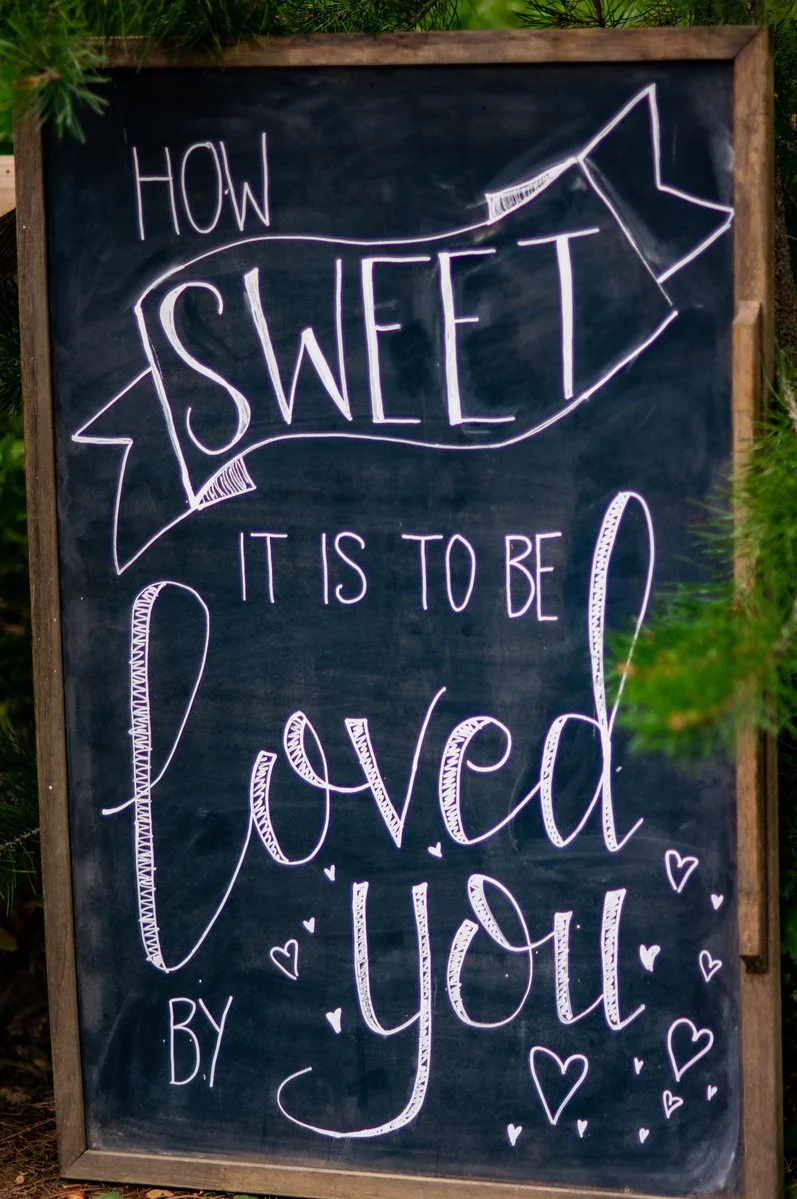 HOW
SWEET
IT IS TO BE
loved
BY you